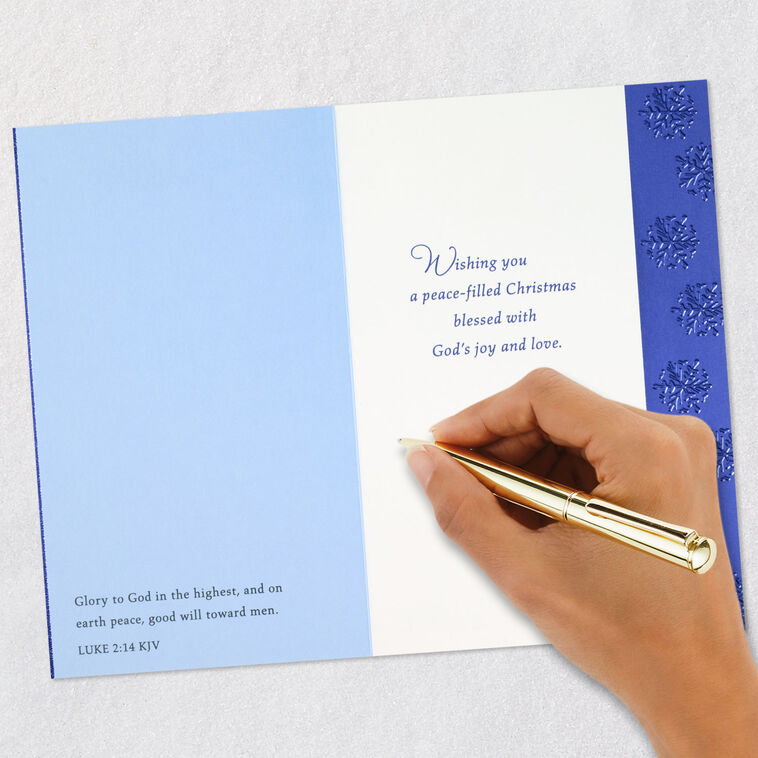 Glory to God in the highest, and on
earth peace, good will toward men.
LUKE 2:14 KJV
Wishing you
a peace-filled Christmas
blessed with
God's joy and love.